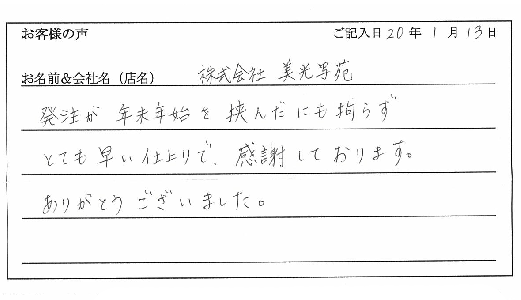 お客様の声 ご記入日 20年 1月 13日
お名前&会社名（店名） 株式会社 美光写苑
発注が 年末年始を 挟んだにも拘らず
とても早い仕上りで、感謝しております。
ありがとうございました。